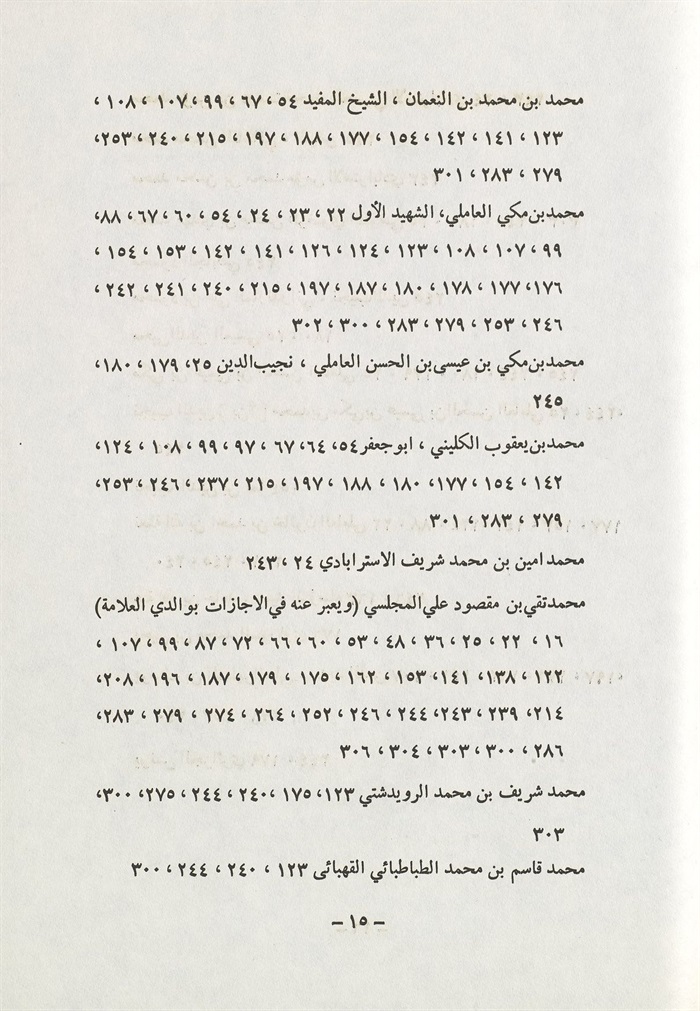 محمد بن محمد بن النعمان ، الشيخ المفيد ٥٤ ، ٦٧ ، ٩٩ ، ١٠٧ ، ١٠٨ ،
١٢٣ ، ١٤١ ، ١٤٢ ، ١٥٤ ، ١٧٧ ، ١٨٨ ، ١٩٧ ، ٢١٥ ، ٢٤٠ ، ٢٥٣،
٢٧٩ ، ٢٨٣ ، ٣٠١
محمدبن مكي العاملي، الشهيد الأول ٢٢ ، ٢٣ ، ٢٤ ، ٥٤ ، ٦٠ ، ٦٧ ، ٨٨،
٩٩ ، ١٠٧ ، ١٠٨ ، ١٢٣ ، ١٢٤ ، ١٢٦ ، ١٤١ ، ١٤٢ ، ١٥٣ ، ١٥٤ ،
١٧٦ ، ١٧٧ ، ١٧٨ ، ١٨٠ ، ١٨٧ ، ١٩٧ ، ٢١٥ ، ٢٤٠ ، ٢٤١ ، ٢٤٢ ،
٢٤٦ ، ٢٥٣ ، ٢٧٩ ، ٢٨٣ ، ٣٠٠ ، ٣٠٢
محمدبن مكي بن عيسى بن الحسن العاملي ، نجيب الدين ٢٥، ١٧٩ ، ١٨٠،
٢٤٥
محمدبن يعقوب الكليني ، ابوجعفر ٥٤، ٦٤، ٦٧ ، ٩٧ ، ٩٩ ، ١٠٨ ، ١٢٤،
١٤٢ ، ١٥٤ ، ١٧٧، ١٨٠ ، ١٨٨ ، ١٩٧ ، ٢١٥ ، ٢٣٧ ، ٢٤٦ ، ٢٥٣،
٢٧٩ ، ٢٨٣ ، ٣٠١
محمد امين بن محمد شريف الاسترابادي ٢٤ ، ٢٤٣
محمدتقي بن مقصود علي المجلسي (ويعبر عنه في الاجازات بوالدي العلامة)
١٦ ، ٢٢ ، ٢٥ ، ٣٦ ، ٤٨ ، ٥٣ ، ٦٠ ، ٦٦ ، ٧٢ ، ٨٧ ، ٩٩ ، ١٠٧ ،
١٢٢ ، ١٣٨، ١٤١ ، ١٥٣ ، ١٦٢ ، ١٧٥ ، ١٧٩ ، ١٨٧ ، ١٩٦ ، ٢٠٨،
٢١٤، ٢٣٩ ، ٢٤٣، ٢٤٤ ، ٢٤٦ ، ٢٥٢ ، ٢٦٤ ، ٢٧٤ ، ٢٧٩ ، ٢٨٣،
٢٨٦ ، ٣٠٠ ، ٣٠٣ ، ٣٠٤ ، ٣٠٦
محمد شريف بن محمد الرويدشتي ١٢٣، ١٧٥ ، ٢٤٠، ٢٤٤ ، ٢٧٥ ، ٣٠٠،
٣٠٣
محمد قاسم بن محمد الطباطبائي القهبائى ١٢٣ ، ٢٤٠ ، ٢٤٤ ، ٣٠٠
– ١٥ –